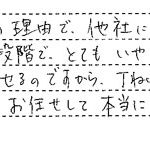 の理由で、他社に
段階で、とても いや
せるのですから、丁ねい
お任せして 本当に